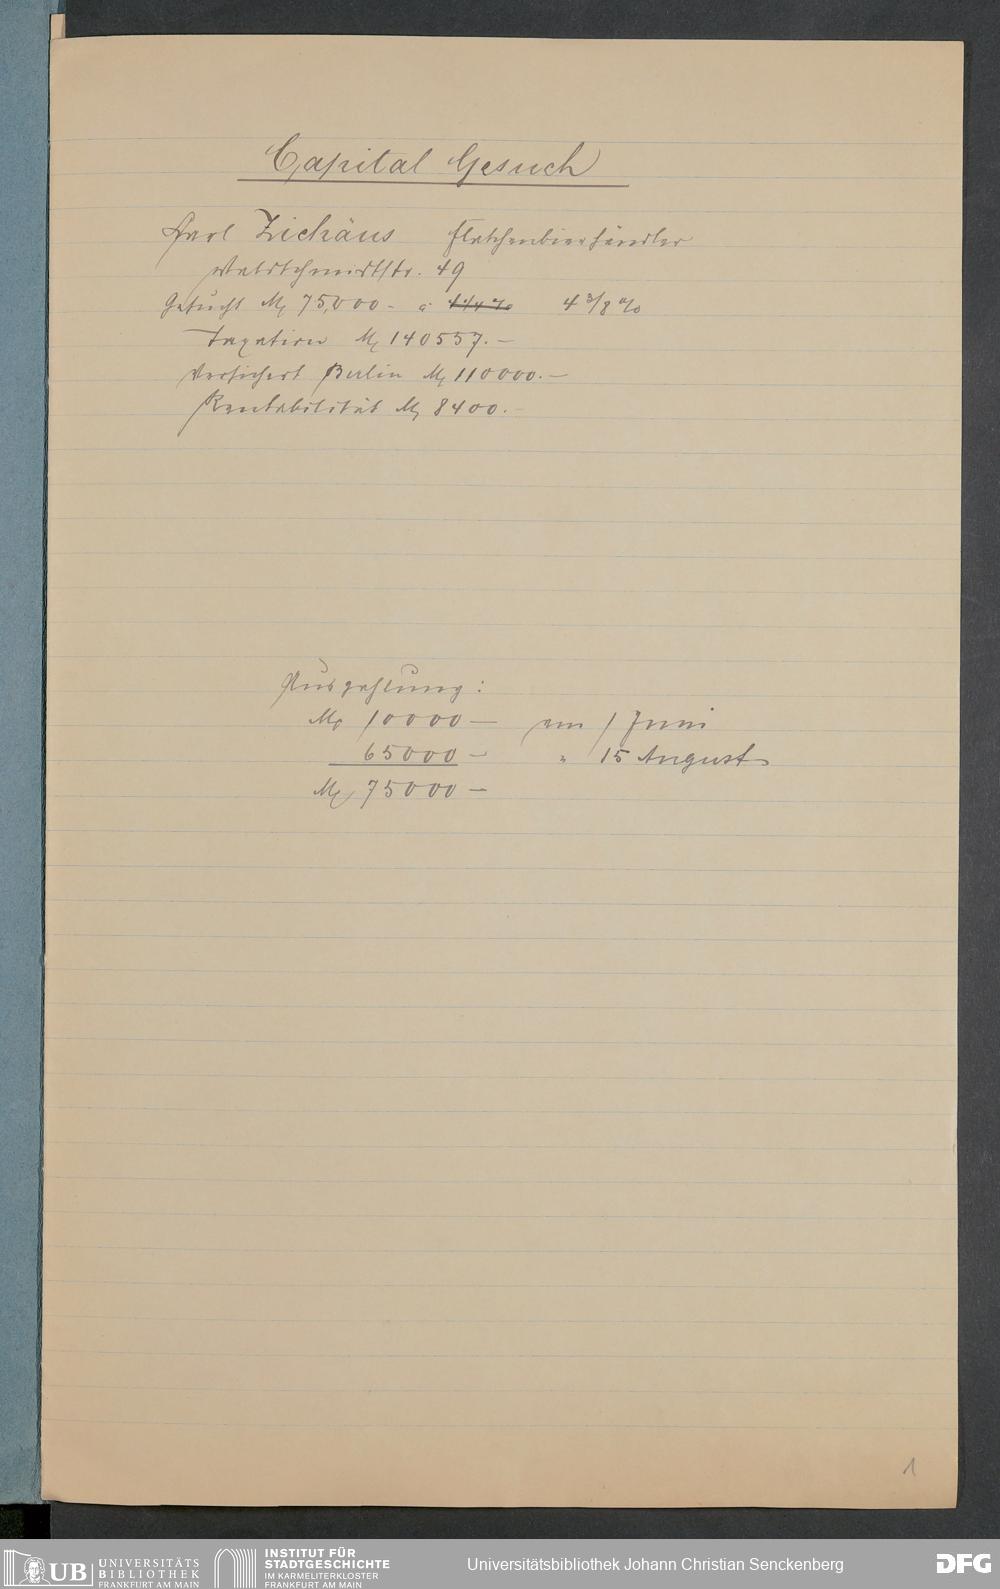 Capital Gesuch
Karl Zichäus Flaschenbierhändler
Waldschmidtstr. 49
Gesucht M 75,000 - à 4 1/4 % 4 3/8 %
Taxation M 140557. —
Versichert Berlin M 110000. —
Rentabilität M 8400. -
Auszahlung:
M 10000 — am 1 Juni
65000 — " 15 August
M 75000 —
1
UB UNIVERSITÄTS
BIBLIOTHEK
FRANKFURT AM MAIN
INSTITUT FÜR
STADTGESCHICHTE
IM KARMELITERKLOSTER
FRANKFURT AM MAIN
Universitätsbibliothek Johann Christian Senckenberg
DFG